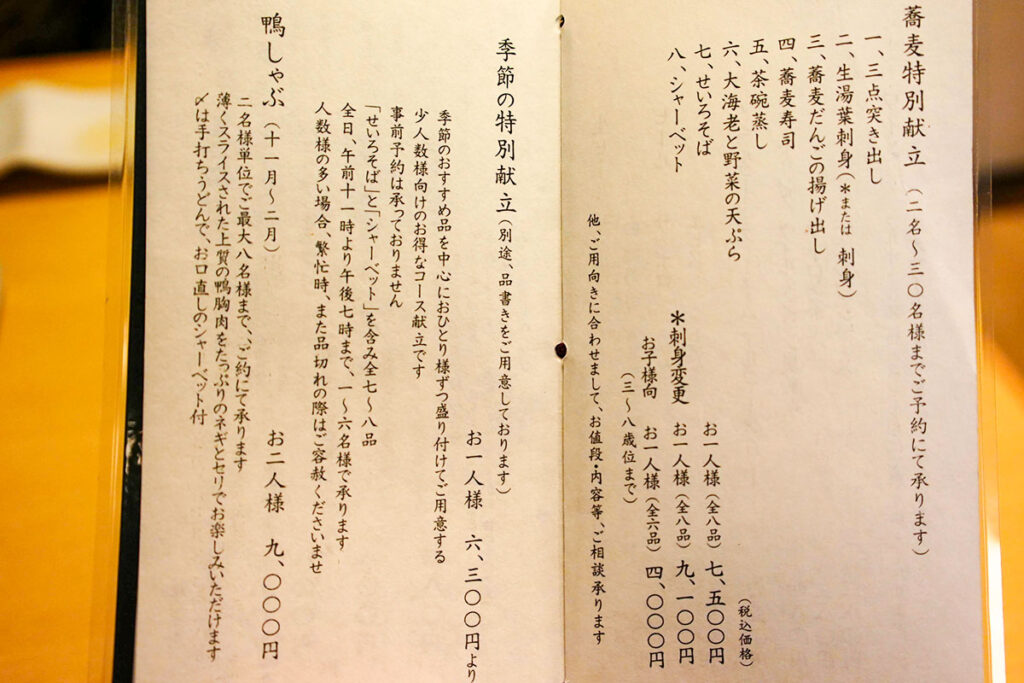 蕎麦特別献立（二名～三〇名様までご予約にて承ります）
一、三点突き出し
二、生湯葉刺身（＊または 刺身）
三、蕎麦だんごの揚げ出し
四、蕎麦寿司
五、茶碗蒸し
六、大海老と野菜の天ぷら
七、せいろそば
八、シャーベット
（税込価格）
お一人様（全八品）七、五〇〇円
＊刺身変更 お一人様（全八品）九、一〇〇円
お子様向 お一人様（全六品）四、〇〇〇円
（三～八歳位まで）
他、ご用向きに合わせまして、お値段・内容等、ご相談承ります
季節の特別献立（別途、品書きをご用意しております）
お一人様 六、三〇〇円より
季節のおすすめ品を中心におひとり様ずつ盛り付けてご用意する
少人数様向けのお得なコース献立です
事前予約は承っておりません
「せいろそば」と「シャーベット」を含み全七～八品
全日、午前十一時より午後七時まで、一～六名様で承ります
人数様の多い場合、繁忙時、また品切れの際はご容赦くださいませ
鴨しゃぶ（十一月～二月）
お二人様 九、〇〇〇円
二名様単位でご最大八名様まで、ご約にて承ります
薄くスライスされた上質の鴨胸肉をたっぷりのネギとセリでお楽しみいただけます
〆は手打ちうどんで、お口直しのシャーベット付